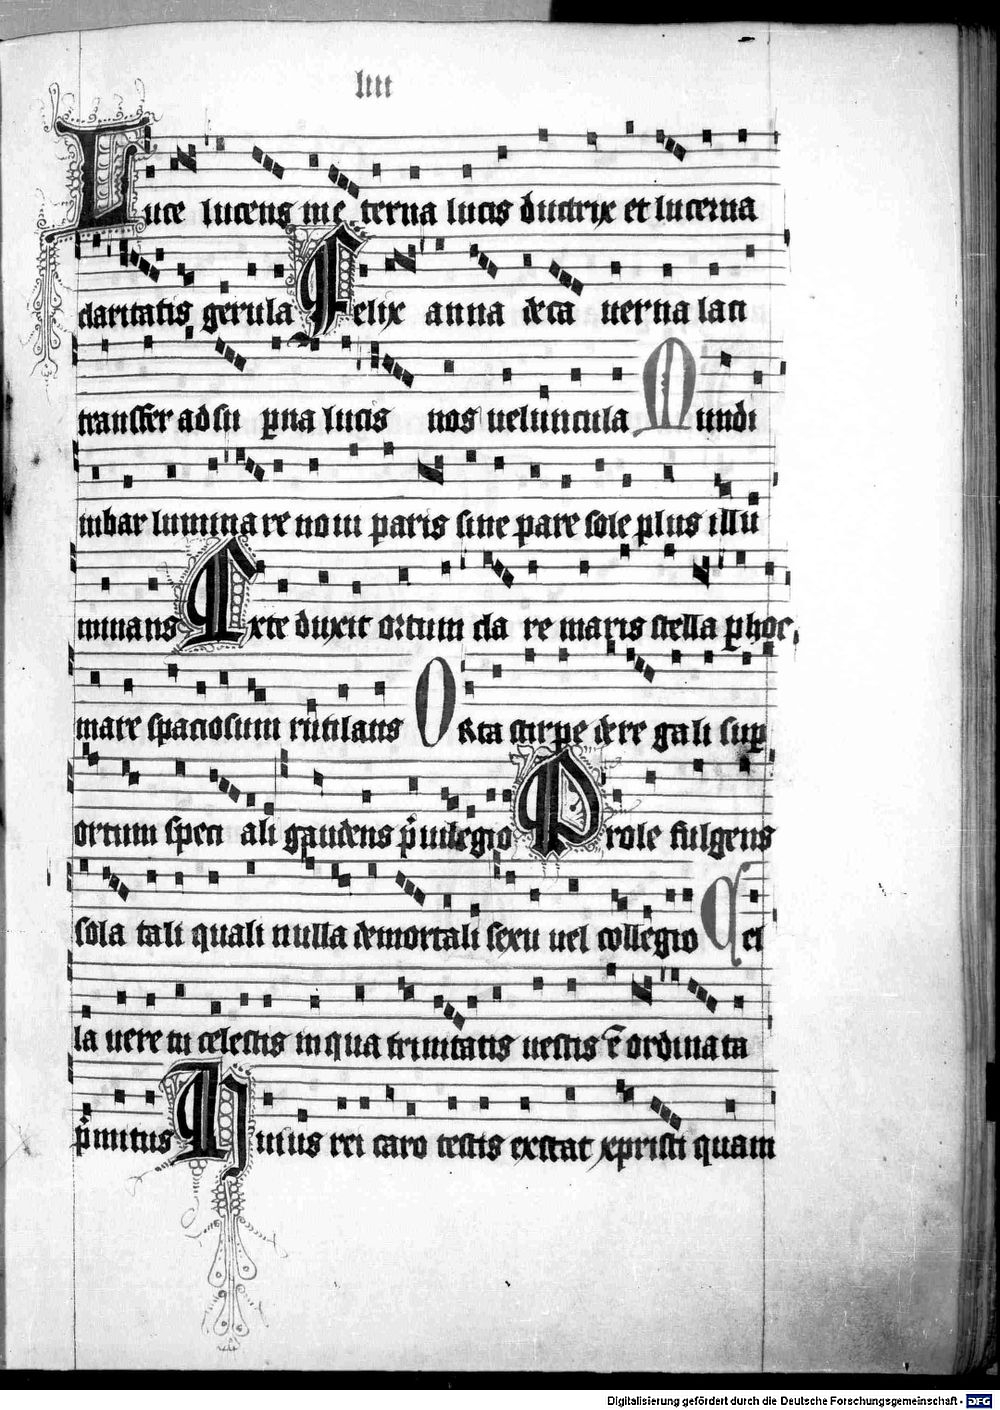 liiii
Luce lucens in e terna lucis ductrix et lucerna
claritatis gerula Felix anna de ca uerna laci
transfer ad su p̱na lucis nos ueluncula Mundi
iubar lumina re noui paris sine pare sole plus illu
minans Exte duxit ortum cla re maris stella p̱ hoc
mare spaciosum rutilans Orta stirpe de re gali sup̱
ortum speci ali gaudens p̾uilegio Prole fulgens
sola tali quali nulla de mortali sexu uel collegio Cel
la uere tu celestis in qua trinitatis uestis ē ordinata
p̾mitus Huius rei caro testis exstat xpristi quam
Digitalisierung gefördert durch die Deutsche Forschungsgemeinschaft - DFG